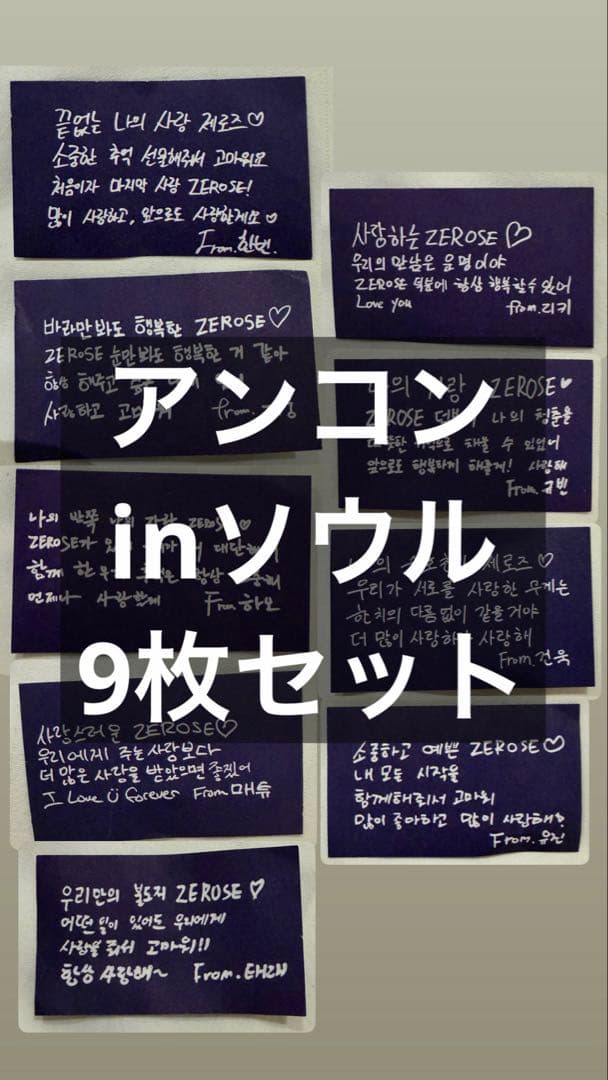 끝없는 나의 사랑 제로즈♡
소중한 추억 선물해줘서 고마워요
처음이자 마지막 사랑 ZEROSE!
많이 사랑하고, 앞으로도 사랑할게요♡
From.한빈.
사랑하는 ZEROSE♡
우리의 만남은 운명이야
ZEROSE 덕분에 항상 행복할 수 있어
Love you from.리키
바라만봐도 행복한 ZEROSE♡
ZEROSE 눈만봐도 행복한 거 같아
항상
사랑하고 고마워 from.
ZEROSE♥
ZEROSE 나의 청춘을
채울 수 있었어
앞으로도 행복하게 해줄게! 사랑해
From.규빈
アンコン
inソウル
9枚セット
나의 반쪽 나의 자랑 ZEROSE♡
ZEROSE가
함께 한
언제나 사랑할게 From.하오
제로즈♡
우리가 서로를 사랑한 무게는
한치의 다름없이 같을거야
더 많이 사랑하고 사랑해
From.건욱
사랑스러운 ZEROSE♡
우리에게 주는 사랑보다
더 많은 사랑을 받았으면 좋겠어
I Love U forever From 매튜
소중하고 예쁜 ZEROSE♡
내 모든 시작을
함께해줘서 고마워
많이 좋아하고 많이 사랑해?
From.유진
우리만의 복도지 ZEROSE♡
어떤 일이 있어도 우리에게
사랑을 줘서 고마워!!
항상 사랑해~ From.태래